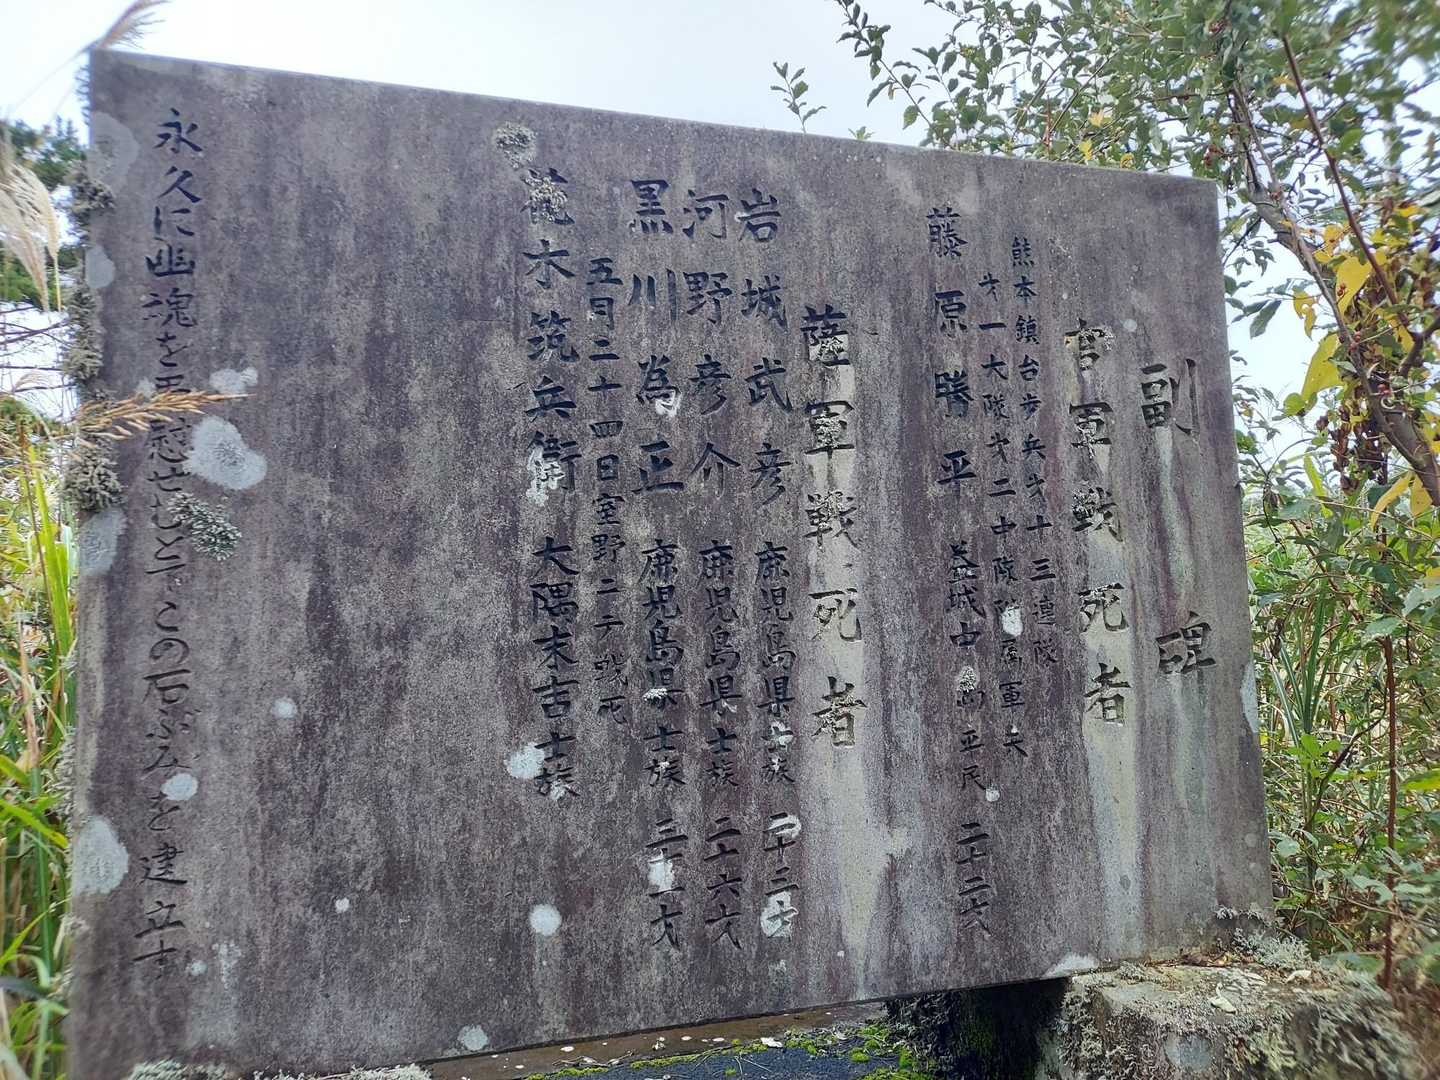 副碑
官軍戦死者
熊本鎮台歩兵才十三連隊
才一大隊才二中隊附属軍夫
藤原勝平 益城中山平民 二十二才
薩軍戦死者
岩城武彦 鹿児島県士族 二十二才
河野彦介 鹿児島県士族 二十六才
黒川為正 鹿児島県士族 三十一才
五月二十四日室野ニテ戦死
花木筑兵衛 大隅末吉士族
永久に幽魂を弔慰せむとてこの石ぶみを建立す